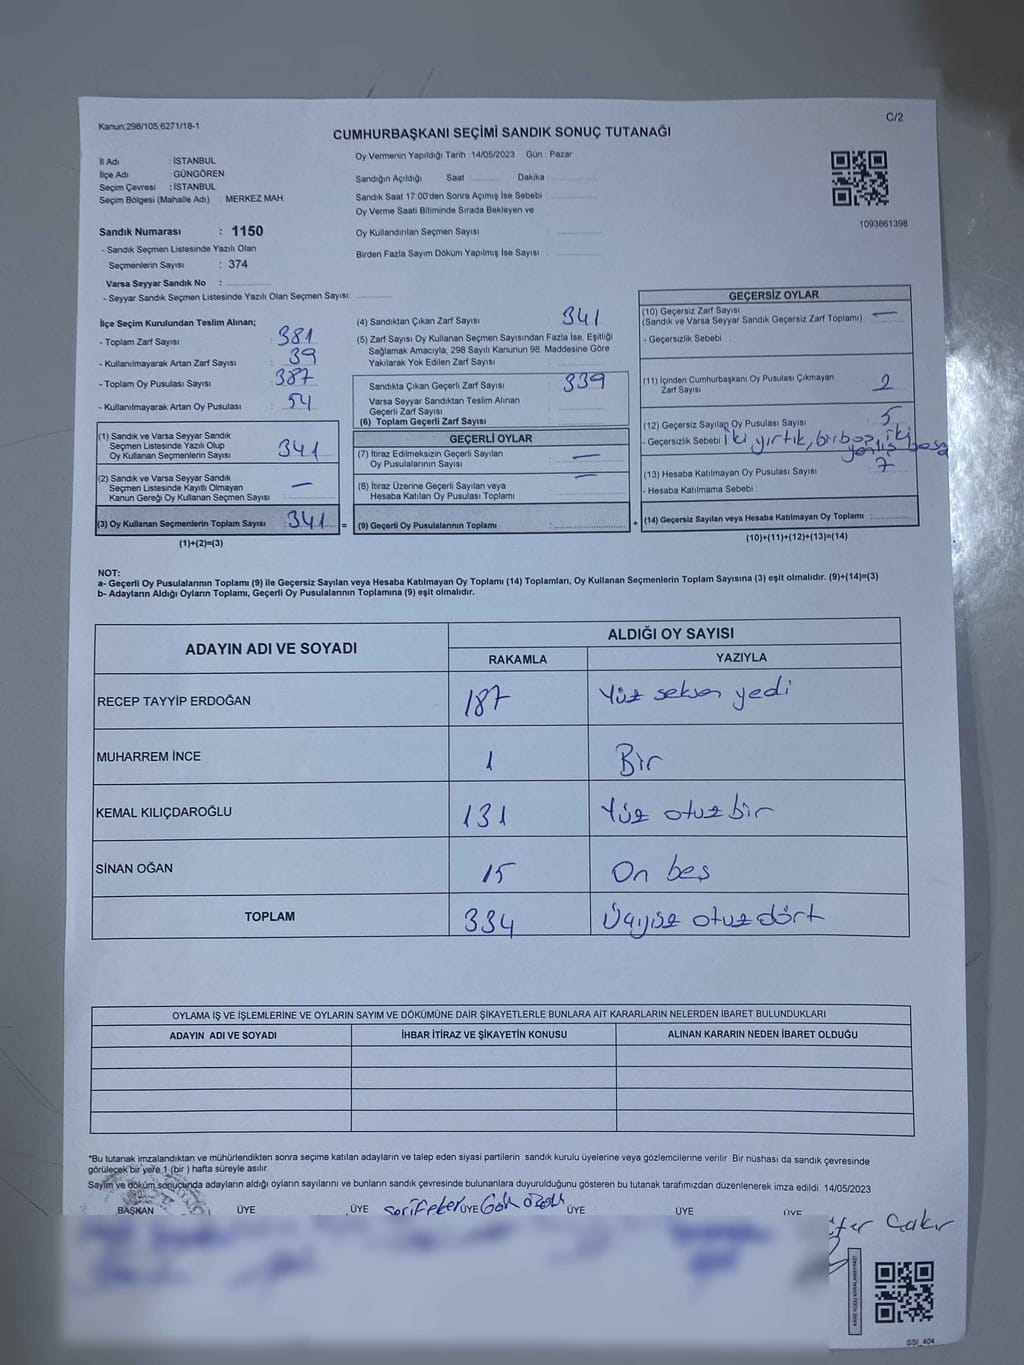 Kanun;298/105,6271/18-1
C/2
CUMHURBAŞKANI SEÇİMİ SANDIK SONUÇ TUTANAĞI
İl Adı : İSTANBUL
İlçe Adı : GÜNGÖREN
Seçim Çevresi : İSTANBUL
Seçim Bölgesi (Mahalle Adı) : MERKEZ MAH.
Sandık Numarası : 1150
- Sandık Seçmen Listesinde Yazılı Olan
Seçmenlerin Sayısı : 374
Varsa Seyyar Sandık No :
- Seyyar Sandık Seçmen Listesinde Yazılı Olan Seçmen Sayısı:
Oy Vermenin Yapıldığı Tarih :14/05/2023 Gün : Pazar
Sandığın Açıldığı Saat Dakika
Sandık Saat 17:00'den Sonra Açımış İse Sebebi :
Oy Verme Saati Bitiminde Sırada Bekleyen ve
Oy Kullandırılan Seçmen Sayısı :
Birden Fazla Sayım Döküm Yapılmış İse Sayısı :
1093861398
İlçe Seçim Kurulundan Teslim Alınan;
- Toplam Zarf Sayısı : 381
- Kullanılmayarak Artan Zarf Sayısı : 39
- Toplam Oy Pusulası Sayısı : 387
- Kullanılmayarak Artan Oy Pusulası : 54
(1) Sandık ve Varsa Seyyar Sandık
Seçmen Listesinde Yazılı Olup
Oy Kullanan Seçmenlerin Sayısı : 341
(2) Sandık ve Varsa Seyyar Sandık
Seçmen Listesinde Kayıtlı Olmayan
Kanun Gereği Oy Kullanan Seçmen Sayısı : —
(3) Oy Kullanan Seçmenlerin Toplam Sayısı : 341 =
(1)+(2)=(3)
(4) Sandıktan Çıkan Zarf Sayısı : 341
(5) Zarf Sayısı Oy Kullanan Seçmen Sayısından Fazla İse, Eşitliği
Sağlamak Amacıyla, 298 Sayılı Kanunun 98. Maddesine Göre
Yakılarak Yok Edilen Zarf Sayısı :
Sandıkta Çıkan Geçerli Zarf Sayısı : 339
Varsa Seyyar Sandıktan Teslim Alınan
Geçerli Zarf Sayısı :
(6) Toplam Geçerli Zarf Sayısı :
GEÇERLİ OYLAR
(7) İtiraz Edilmeksizin Geçerli Sayılan
Oy Pusulalarının Sayısı : —
(8) İtiraz Üzerine Geçerli Sayılan veya
Hesaba Katılan Oy Pusulası Toplamı : —
(9) Geçerli Oy Pusulalarının Toplamı : +
GEÇERSİZ OYLAR
(10) Geçersiz Zarf Sayısı
(Sandık ve Varsa Seyyar Sandık Geçersiz Zarf Toplamı) : —
- Geçersizlik Sebebi :
(11) İçinden Cumhurbaşkanı Oy Pusulası Çıkmayan
Zarf Sayısı : 2
(12) Geçersiz Sayılan Oy Pusulası Sayısı : 5
- Geçersizlik Sebebi : iki yırtık, bir boş, iki
yanlış bası
(13) Hesaba Katılmayan Oy Pusulası Sayısı : 7
- Hesaba Katılmama Sebebi :
(14) Geçersiz Sayılan veya Hesaba Katılmayan Oy Toplamı :
(10)+(11)+(12)+(13)=(14)
NOT:
a- Geçerli Oy Pusulalarının Toplamı (9) ile Geçersiz Sayılan veya Hesaba Katılmayan Oy Toplamı (14) Toplamları, Oy Kullanan Seçmenlerin Toplam Sayısına (3) eşit olmalıdır. (9)+(14)=(3)
b- Adayların Aldığı Oyların Toplamı, Geçerli Oy Pusulalarının Toplamına (9) eşit olmalıdır.
ADAYIN ADI VE SOYADI
ALDIĞI OY SAYISI
RAKAMLA YAZIYLA
RECEP TAYYİP ERDOĞAN 187 Yüz seksen yedi
MUHARREM İNCE 1 Bir
KEMAL KILIÇDAROĞLU 131 Yüz otuz bir
SİNAN OĞAN 15 On beş
TOPLAM 334 Üçyüz otuz dört
OYLAMA İŞ VE İŞLEMLERİNE VE OYLARIN SAYIM VE DÖKÜMÜNE DAİR ŞİKAYETLERLE BUNLARA AİT KARARLARIN NELERDEN İBARET BULUNDUKLARI
ADAYIN ADI VE SOYADI İHBAR İTİRAZ VE ŞİKAYETİN KONUSU ALINAN KARARIN NEDEN İBARET OLDUĞU
*Bu tutanak imzalandıktan ve mühürlendikten sonra seçime katılan adayların ve talep eden siyasi partilerin sandık kurulu üyelerine veya gözlemcilerine verilir. Bir nüshası da sandık çevresinde
görülecek bir yere 1 (bir ) hafta süreyle asılır.
Sayım ve döküm sonucunda adayların aldığı oyların sayılarını ve bunların sandık çevresinde bulunanlara duyurulduğunu gösteren bu tutanak tarafımızdan düzenlenerek imza edildi. 14/05/2023
BAŞKAN ÜYE ÜYE ÜYE ÜYE ÜYE ÜYE
Çakır
SSİ_404